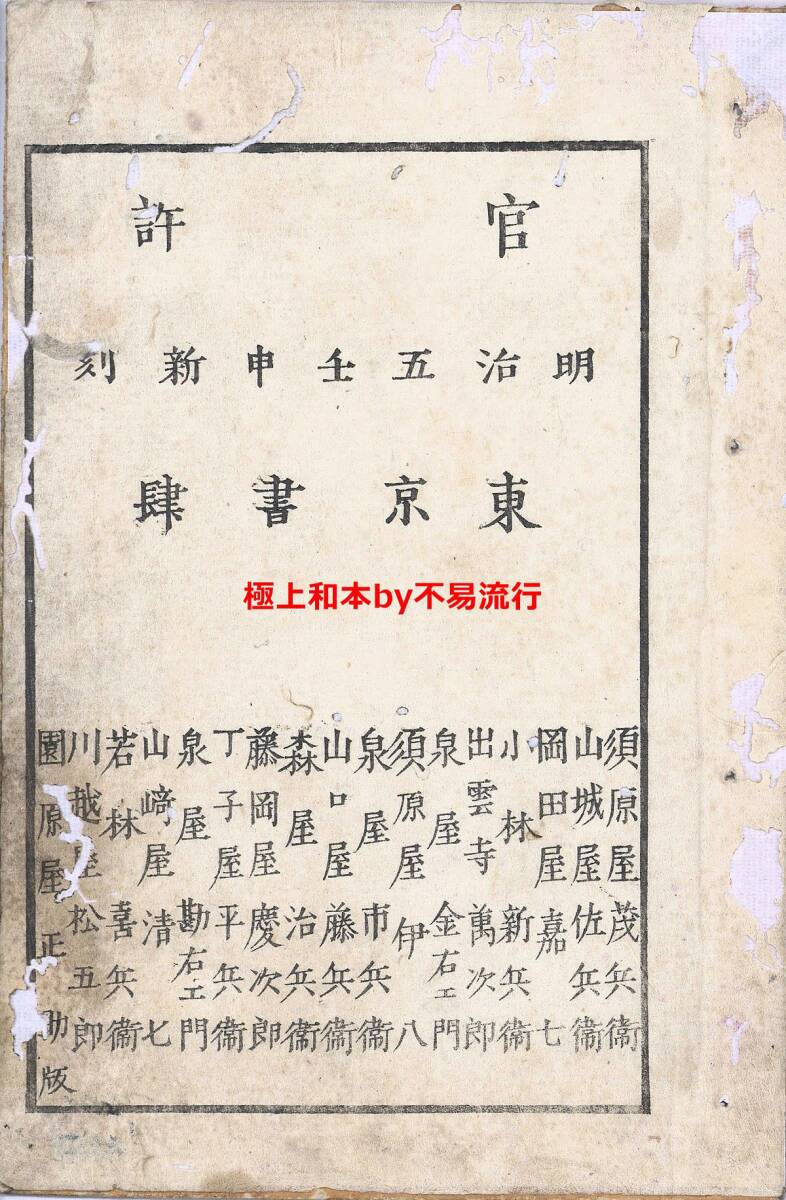 官許
明治五壬申新刻
東京書肆
極上和本by不易流行
須原屋茂兵衞
山城屋佐兵衞
岡田屋嘉七
小林新兵衞
出雲寺萬次郎
泉屋金右エ門
須原屋伊八
泉屋市兵衞
山口屋藤兵衞
森屋治兵衞
藤岡屋慶次郎
丁子屋平兵衞
泉屋勘右エ門
山﨑屋清七
若林喜兵衞
川越屋松五郎
園原屋正助版